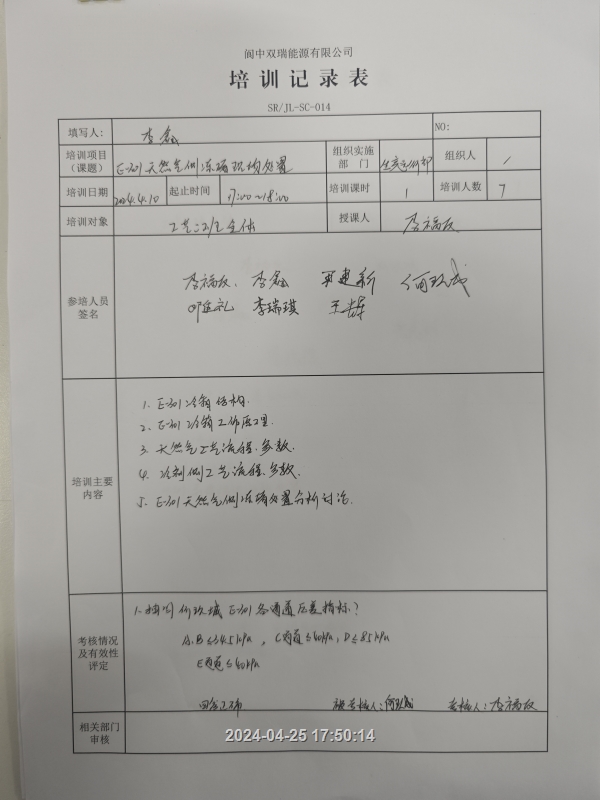 阆中双瑞能源有限公司
培训记录表
SR/JL-SC-014
填写人： 李鑫 NO：
培训项目（课题） E-301天然气侧冻堵现场处置 组织实施部门 生产运行部 组织人 /
培训日期 2024.4.10 起止时间 17:00~18:00 培训课时 1 培训人数 7
培训对象 工艺二班全体 授课人 李福友
参培人员签名
李福友、李鑫 何玖城
邓廷礼 李瑞琪 王辉
培训主要内容
1. E-301冷箱结构.
2. E-301冷箱工作原理.
3. 天然气工艺流程、参数.
4. 冷剂侧工艺流程、参数.
5. E-301天然气侧冻堵处置分析讨论.
考核情况及有效性评定
1. 抽问何玖城 E-301各通道压差指标？
A、B≤34.5kPa，C通道≤40kPa，D≤85kPa
E通道≤40kPa
回答正确 被考核人：何玖城 考核人：李福友
相关部门审核
2024-04-25 17:50:14